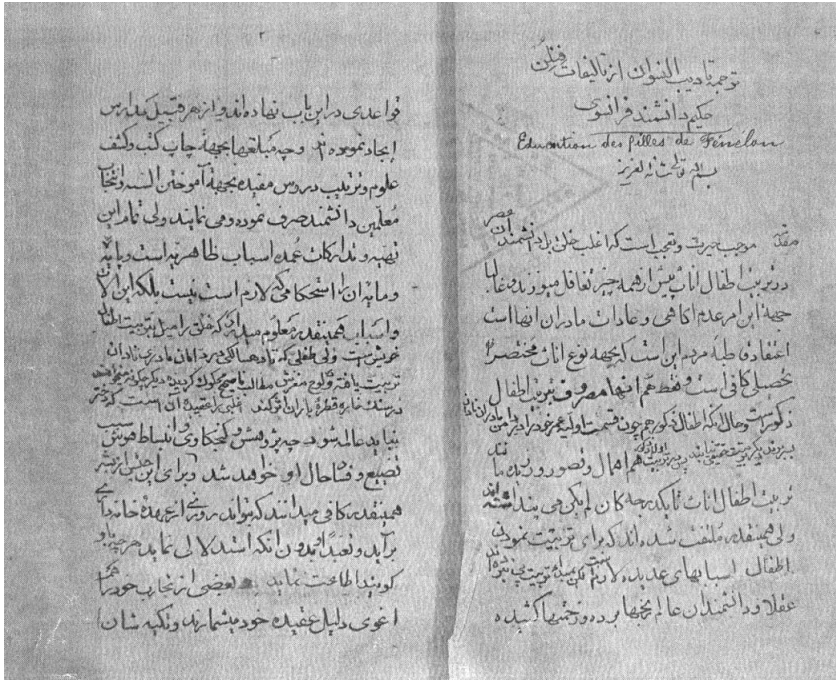 ترجمه تادیب النسوان از تالیفات فنلن
حکیم دانشمند فرانسوی
Education des filles de Fénelon
مقدمه موجب حیرت و تعجب است که اغلب خلق بلکه دانشمندان عصر
در تربیت اطفال اناث بیش از همه چیز تغافل میورزند و غالبا
جهة این امر عدم آکاهی و عادات مادران آنها است
اعتقاد قاطبه مردم این است که بجهه نوع اناث مختصر
تحصیلی کافی است و فقط هم آنها مصروف تربیت اطفال
ذکور است و حال آنکه اطفال ذکور هم چون قسمت اولیه عمر خود را در دامن مادران نادان
هم اهمال و قصور ورزیده
تربیت اطفال اناث تا یکدرجه کان لم یکن می پنداشته اند
ولی همینقدر ملتفت شده اند که برای تربیت نمودن
اطفال اسبابهای عدیده لازم است
عقلا و دانشمندان عالم رنجها برده و زحمتها کشیده
۲
قواعدی در این باب نهاده اند و از هر قبیل مدارس
ایجاد نموده اند و چه مبلغها بجهة چاپ کتب و کشف
علوم و ترتیب دروس مفیده بجهة آموختن السنه و انتخاب
معلمین دانشمند صرف نموده و می نمایند ولی تمام این
تهیه و تدارکات عمده اسباب ظاهریه است و پایه
و مایه آن را استحکامی که لازم است نیست بلکه این آلات
و اسباب همینقدر معلوم میدارد که خلق را میل بتربیت اطفال
خویش هست ولی طفلی که تا ده سالگی در دامان مادری نادان
تربیت یافته و لوح مغزش
در سنک خاره قطرهٔ باران اثر نکند غلبی را عقیده آن است که دختر
نباید عالمه شود چه پژوهش و کنجکاوی و انبساط هوش سبب
تضییع و فساد حال او خواهد شد و برای این جنس از بشر
همینقدر کافی میدانند که بتواند روزی از عهده خانه داری
برآید و تعبدا بدون آنکه استدلالی نماید هر چه باو
کویند اطاعت نماید بعضی از تجارب خود را هم
اغوی دلیل عقیده خود میشمارند و تکیه شان